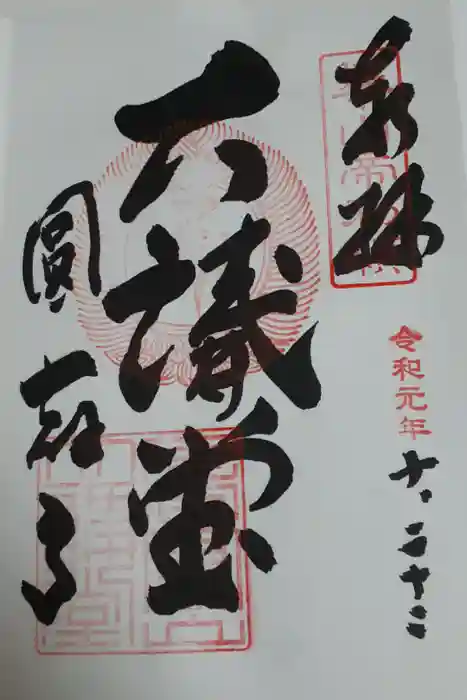 奉拝
令和元年 十、二十二
大講堂
圓教寺